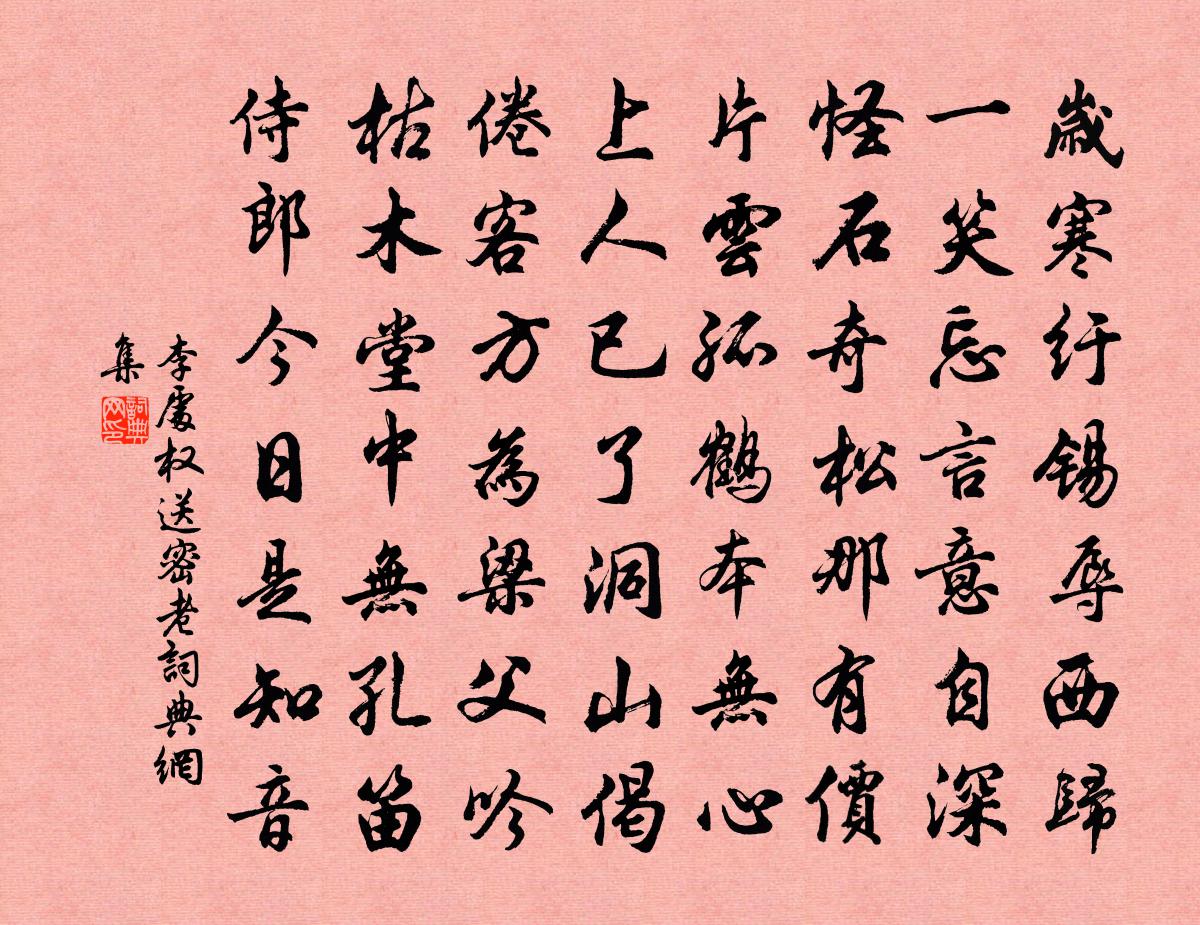 歲寒紆錫辱西歸
一笑忘言意自深
怪石奇松那有價
片雲孤鶴本無心
上人已了洞山偈
倦客方為梁父吟
枯木堂中無孔笛
侍郎今日是知音
李處权送密老詞典網
集
詞典
网印